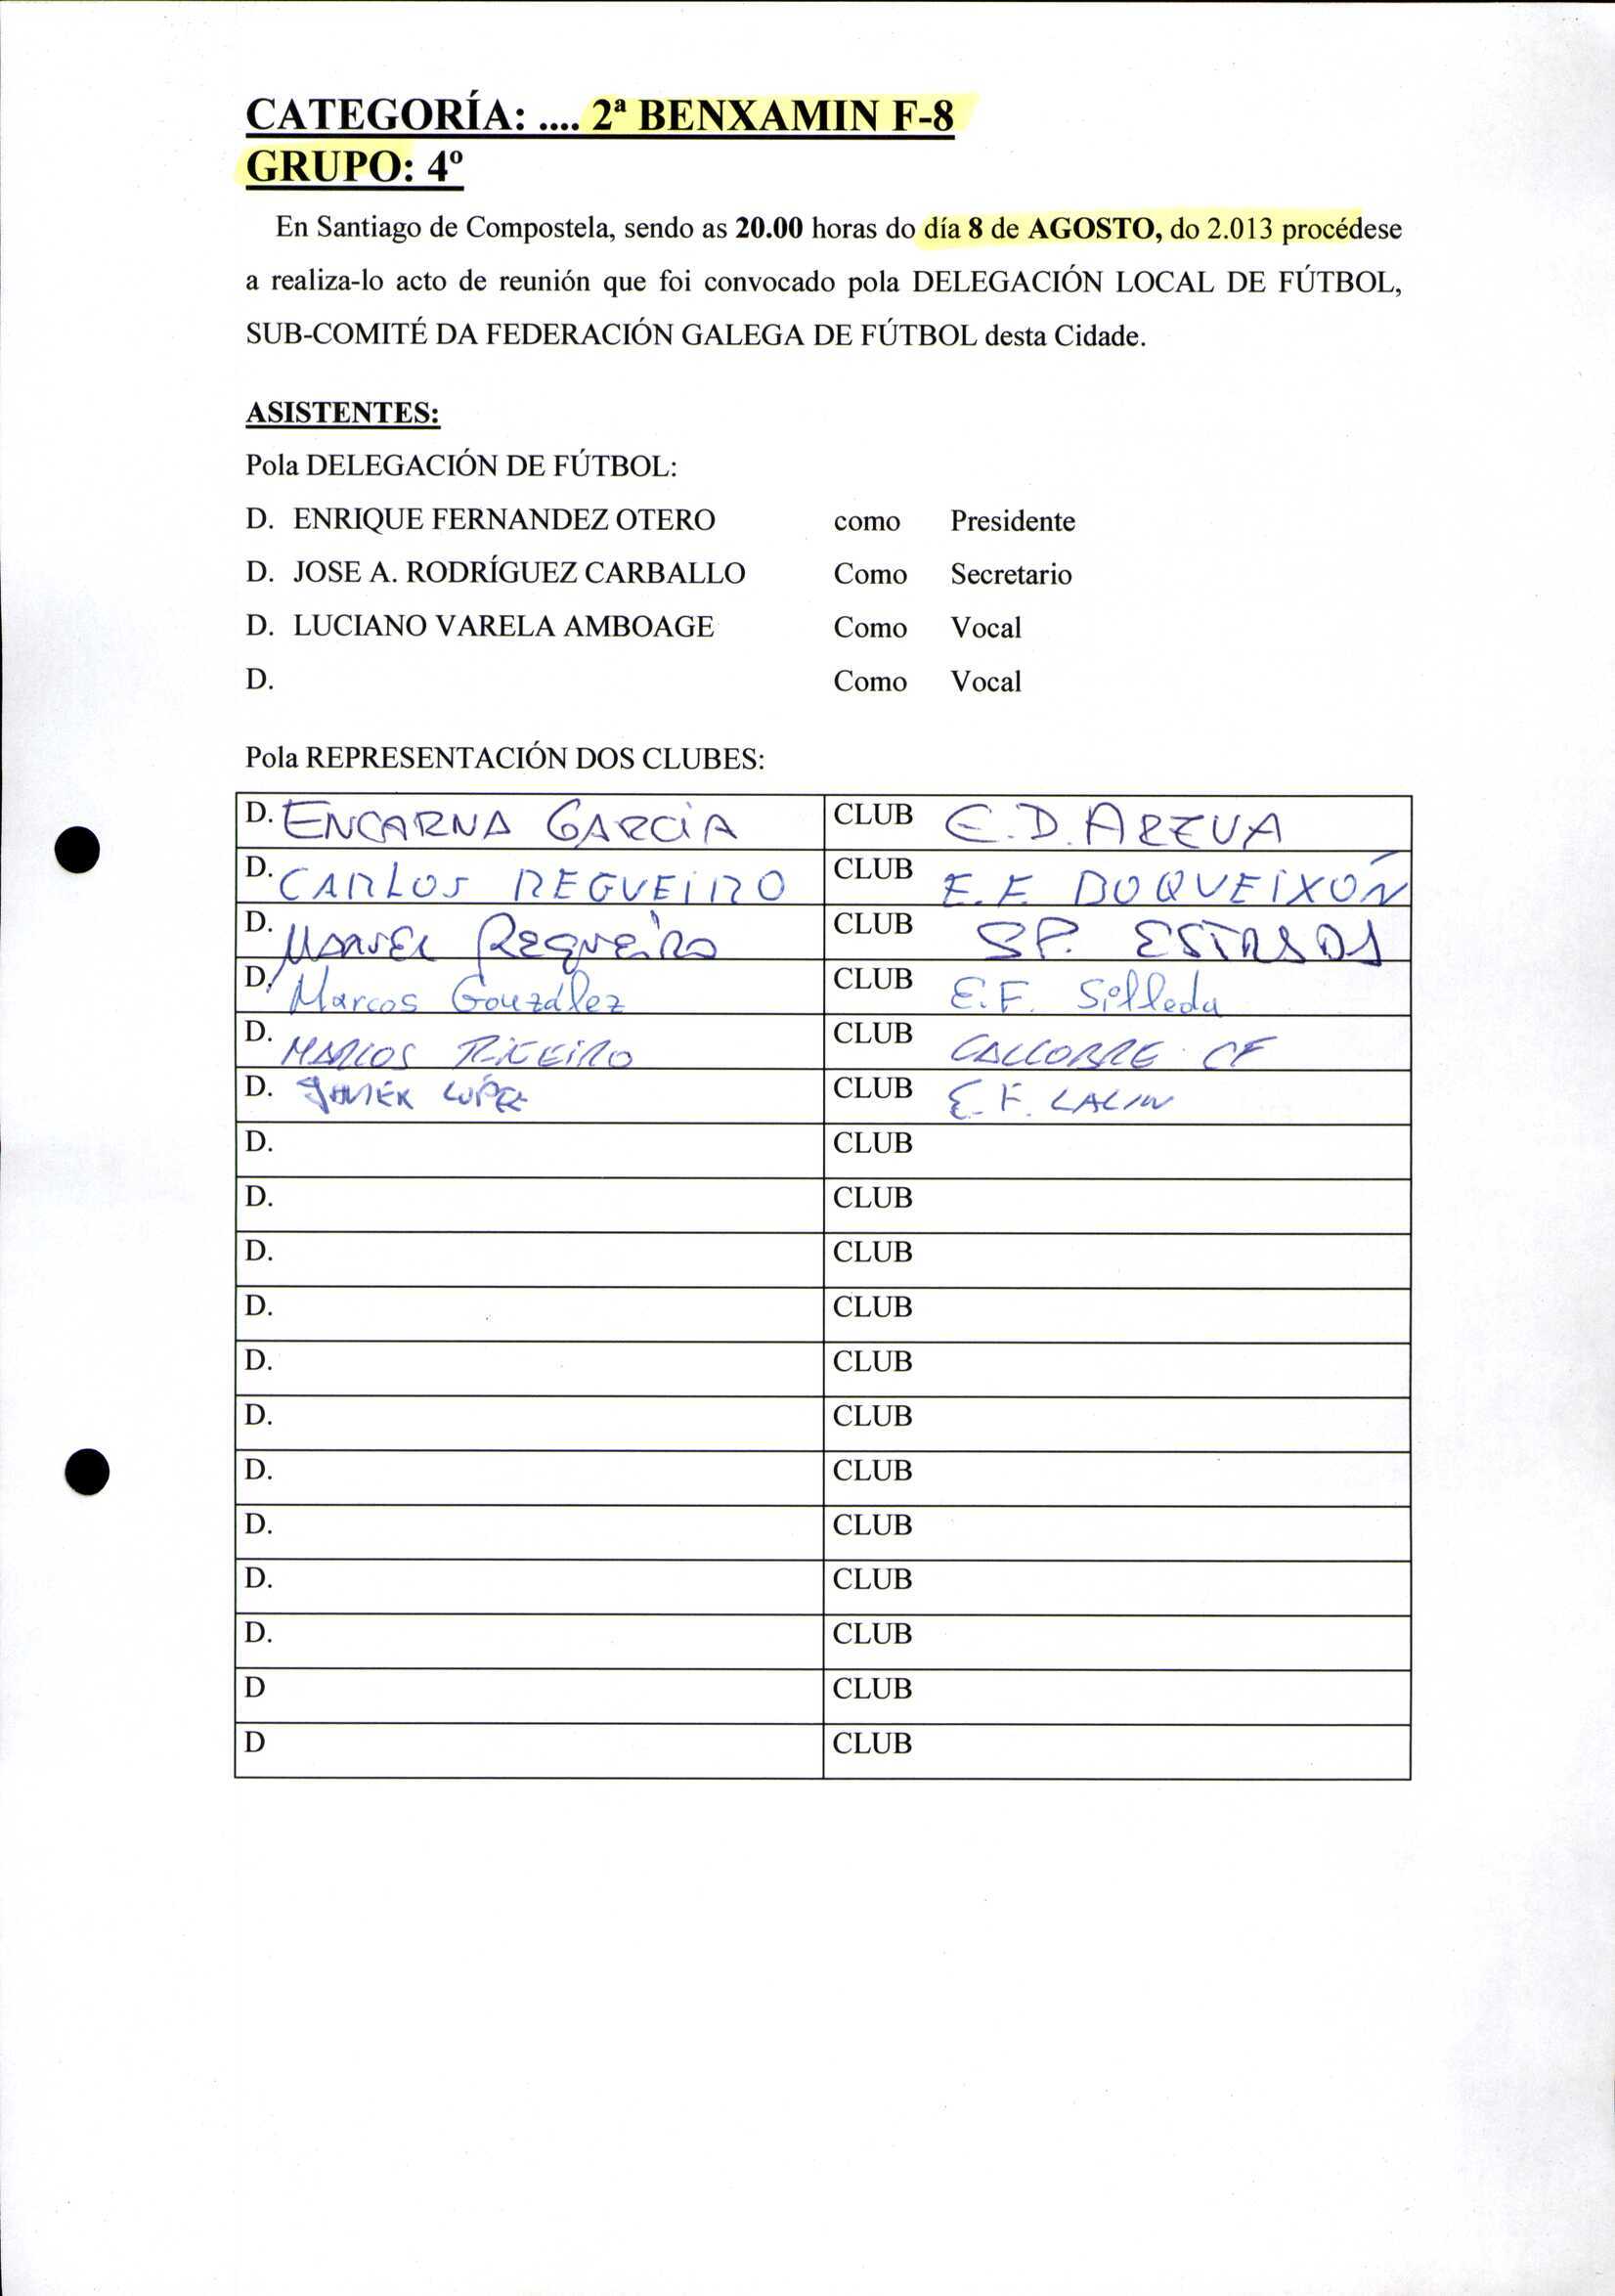 CATEGORÍA: .... 2ª BENXAMIN F-8
GRUPO: 4º
En Santiago de Compostela, sendo as 20.00 horas do día 8 de AGOSTO, do 2.013 procédese
a realiza-lo acto de reunión que foi convocado pola DELEGACIÓN LOCAL DE FÚTBOL,
SUB-COMITÉ DA FEDERACIÓN GALEGA DE FÚTBOL desta Cidade.
ASISTENTES:
Pola DELEGACIÓN DE FÚTBOL:
D. ENRIQUE FERNANDEZ OTERO como Presidente
D. JOSE A. RODRÍGUEZ CARBALLO Como Secretario
D. LUCIANO VARELA AMBOAGE Como Vocal
D. Como Vocal
Pola REPRESENTACIÓN DOS CLUBES:
D. ENCARNA GARCÍA CLUB E.D. ARZUA
D. CARLOS REGUEIRO CLUB E.F. BOQUEIXÓN
D. MANUEL REGUEIRO CLUB SP. ESTRADA
D. Marcos González CLUB E.F. Silleda
D. MARCOS CLUB CALLOBRE CF
D. JAVIER LÓPEZ CLUB E.F. LALIN
D. CLUB
D. CLUB
D. CLUB
D. CLUB
D. CLUB
D. CLUB
D. CLUB
D. CLUB
D. CLUB
D. CLUB
D CLUB
D CLUB